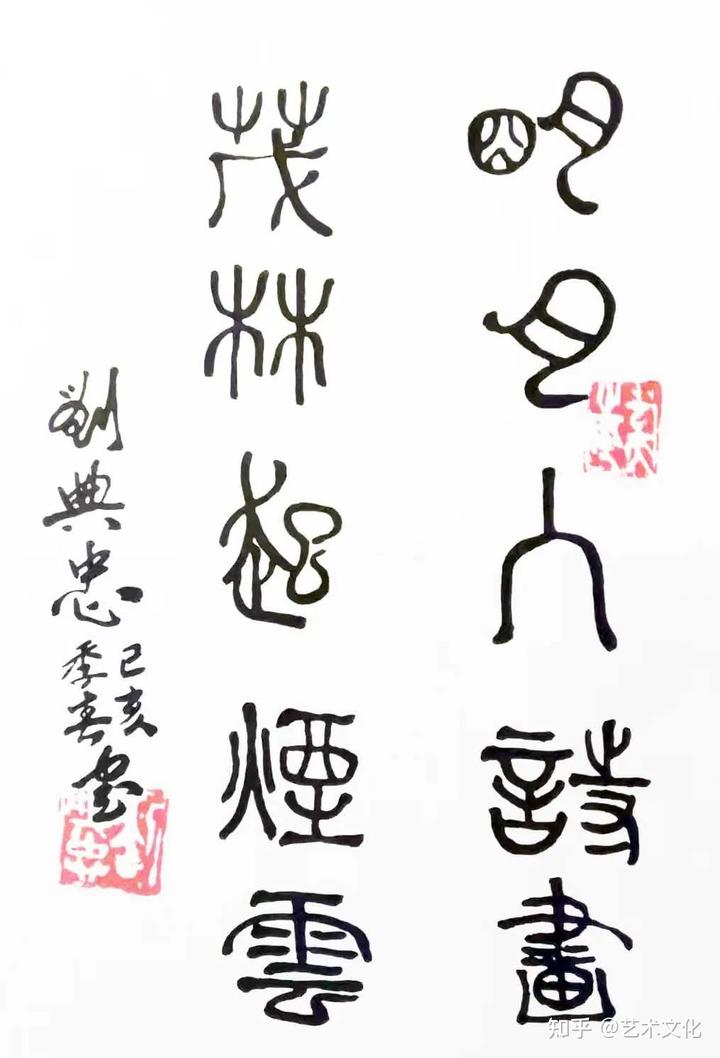 明月入詩畫
茂林起煙雲
劉典忠
己亥
季春
書
知乎 @艺术文化